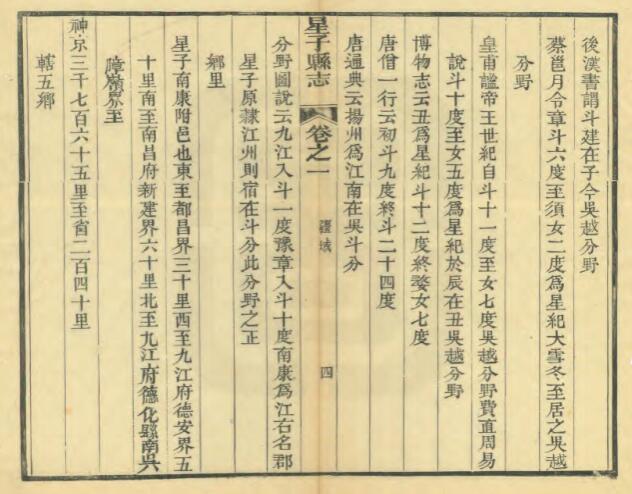 後漢書謂斗建在子今吳越分野
蔡邕月令章斗六度至須女二度爲星紀大雪冬至居之吳越
分野
皇甫謐帝王世紀自斗十一度至女七度吳越分野費直周易
說斗十度至女五度爲星紀於辰在丑吳越分野
博物志云丑爲星紀斗十二度終婺女七度
唐僧一行云初斗九度終斗二十四度
唐通典云揚州爲江南在吳斗分
星子縣志
卷之一
疆域
四
分野圖說云九江入斗一度豫章入斗十度南康爲江右名郡
星子原隸江州則宿在斗分此分野之正
鄉里
星子南康附邑也東至都昌界三十里西至九江府德安界五
十里南至南昌府新建界六十里北至九江府德化縣南吳
障嶺界至
神京三千七百六十五里至省二百四十里
轄五鄉